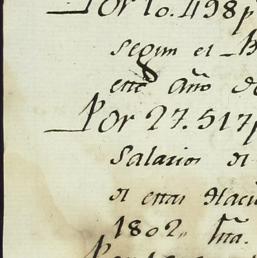 Por 10.498p
segun el
este año de
Por 27.517p
Salarios de
de estas Haci
1802,, 
Por